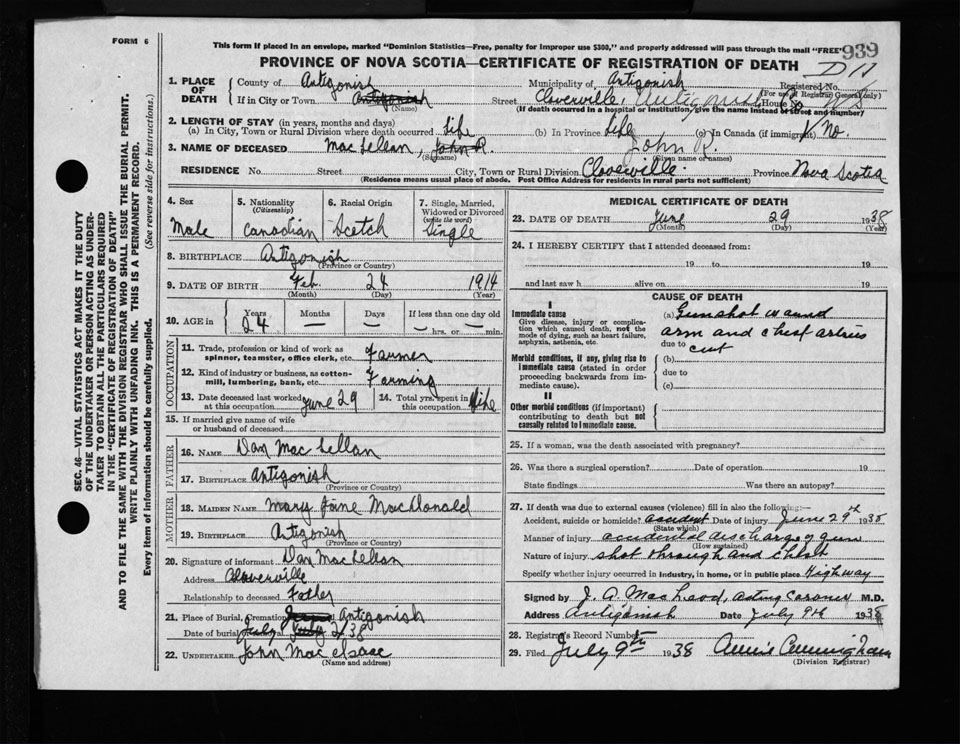 FORM 6
This form if placed in an envelope, marked "Dominion Statistics—Free, penalty for improper use $300," and properly addressed will pass through the mail "FREE"
939
PROVINCE OF NOVA SCOTIA—CERTIFICATE OF REGISTRATION OF DEATH
1. PLACE OF DEATH
County of Antigonish Municipality of Antigonish Registered No.
(For use of Registrar General only)
If in City or Town Antigonish Street Cloverville, Antigonish House No. NS
(Name) (If death occurred in a hospital or institution, give the name instead of street and number)
2. LENGTH OF STAY (in years, months and days)
(a) In City, Town or Rural Division where death occurred Life (b) In Province Life (c) In Canada (if immigrant) No.
3. NAME OF DECEASED MacLellan, John R. John R.
(Surname) (Given name or names)
RESIDENCE No. Street City, Town or Rural Division Cloverville Province Nova Scotia
(Residence means usual place of abode. Post Office Address for residents in rural parts not sufficient)
4. Sex Male
5. Nationality (Citizenship) Canadian
6. Racial Origin Scotch
7. Single, Married, Widowed or Divorced (write the word) Single
8. BIRTHPLACE Antigonish
(Province or Country)
9. DATE OF BIRTH Feb. 24 1914
(Month) (Day) (Year)
10. AGE in Years 24 Months — Days — If less than one day old — hrs. or — min.
OCCUPATION
11. Trade, profession or kind of work as spinner, teamster, office clerk, etc. Farmer
12. Kind of industry or business, as cotton-mill, lumbering, bank, etc. Farming
13. Date deceased last worked at this occupation June 29
14. Total yrs. spent in this occupation Life
15. If married give name of wife or husband of deceased
FATHER
16. NAME Dan MacLellan
17. BIRTHPLACE Antigonish
(Province or Country)
MOTHER
18. MAIDEN NAME Mary Jane MacDonald
19. BIRTHPLACE Antigonish
(Province or Country)
20. Signature of informant Dan MacLellan
Address Cloverville
Relationship to deceased Father
21. Place of Burial, Cremation Antigonish
Date of burial July July 2/38
22. UNDERTAKER John MacIsaac
(Name and address)
MEDICAL CERTIFICATE OF DEATH
23. DATE OF DEATH June 29 1938
(Month) (Day) (Year)
24. I HEREBY CERTIFY that I attended deceased from:
19 to 19
and last saw h alive on 19
CAUSE OF DEATH
I
Immediate cause
Give disease, injury or complication which caused death, not the mode of dying, such as heart failure, asphyxia, asthenia, etc.
(a) Gunshot wound
arm and chest arteries
due to cut
Morbid conditions, if any, giving rise to immediate cause (stated in order proceeding backwards from immediate cause).
(b)
due to
(c)
II
Other morbid conditions (if important) contributing to death but not causally related to immediate cause.
25. If a woman, was the death associated with pregnancy?
26. Was there a surgical operation? Date of operation 19
State findings Was there an autopsy?
27. If death was due to external causes (violence) fill in also the following:—
Accident, suicide or homicide? accident Date of injury June 29th 1938
(State which)
Manner of injury accidental discharge of gun
(How sustained)
Nature of injury shot through and chest
Specify whether injury occurred in industry, in home, or in public place Highway
Signed by J. A. MacLeod, Acting Coroner M.D.
Address Antigonish Date July 9th 1938
28. Registrar's Record Number
29. Filed July 9th 1938 Annie Cunningham
(Division Registrar)
SEC. 46—VITAL STATISTICS ACT MAKES IT THE DUTY
OF THE UNDERTAKER OR PERSON ACTING AS UNDER-
TAKER TO OBTAIN ALL THE PARTICULARS REQUIRED
IN THE "CERTIFICATE OF REGISTRATION OF DEATH"
AND TO FILE THE SAME WITH THE DIVISION REGISTRAR WHO SHALL ISSUE THE BURIAL PERMIT.
WRITE PLAINLY WITH UNFADING INK. THIS IS A PERMANENT RECORD.
Every item of information should be carefully supplied. (See reverse side for instructions.)